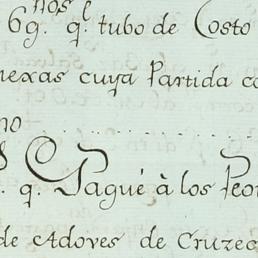 nos l
69. q.l tubo de Costo
nexas cuya Partida co
no
q. Pagué à los Peo
de Adoves de Cruzeg